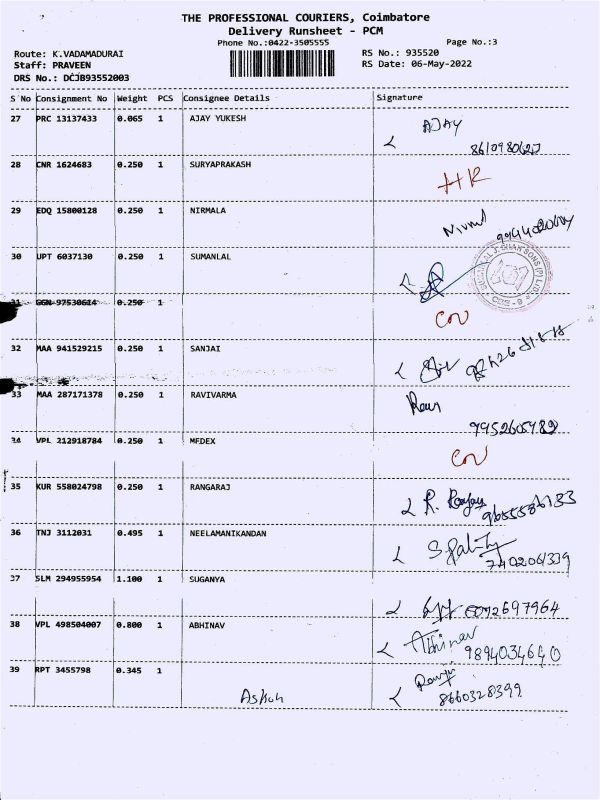 THE PROFESSIONAL COURIERS, Coimbatore
Delivery Runsheet - PCM
Phone No.:0422-3505555 Page No.:3
Route: K.VADAMADURAI RS No.: 935520
Staff: PRAVEEN RS Date: 06-May-2022
DRS No.: DCJB93552003
S No Consignment No Weight PCS Consignee Details Signature
27 PRC 13137433 0.065 1 AJAY YUKESH AJAY
28 CNR 1624683 0.250 1 SURYAPRAKASH HR
29 EDQ 15800128 0.250 1 NIRMALA
30 UPT 6037130 0.250 1 SUMANLAL
31 GGN 97530614 0.250 1
32 MAA 941529215 0.250 1 SANJAI
33 MAA 287171378 0.250 1 RAVIVARMA
9952605982
34 VPL 212918784 0.250 1 MFDEX
35 KUR 558024798 0.250 1 RANGARAJ
36 TNJ 3112031 0.495 1 NEELAMANIKANDAN
37 SLM 294955954 1.100 1 SUGANYA
38 VPL 498504007 0.800 1 ABHINAV Abhinav
9894034640
39 RPT 3455798 0.345 1
Ashok 8660328399